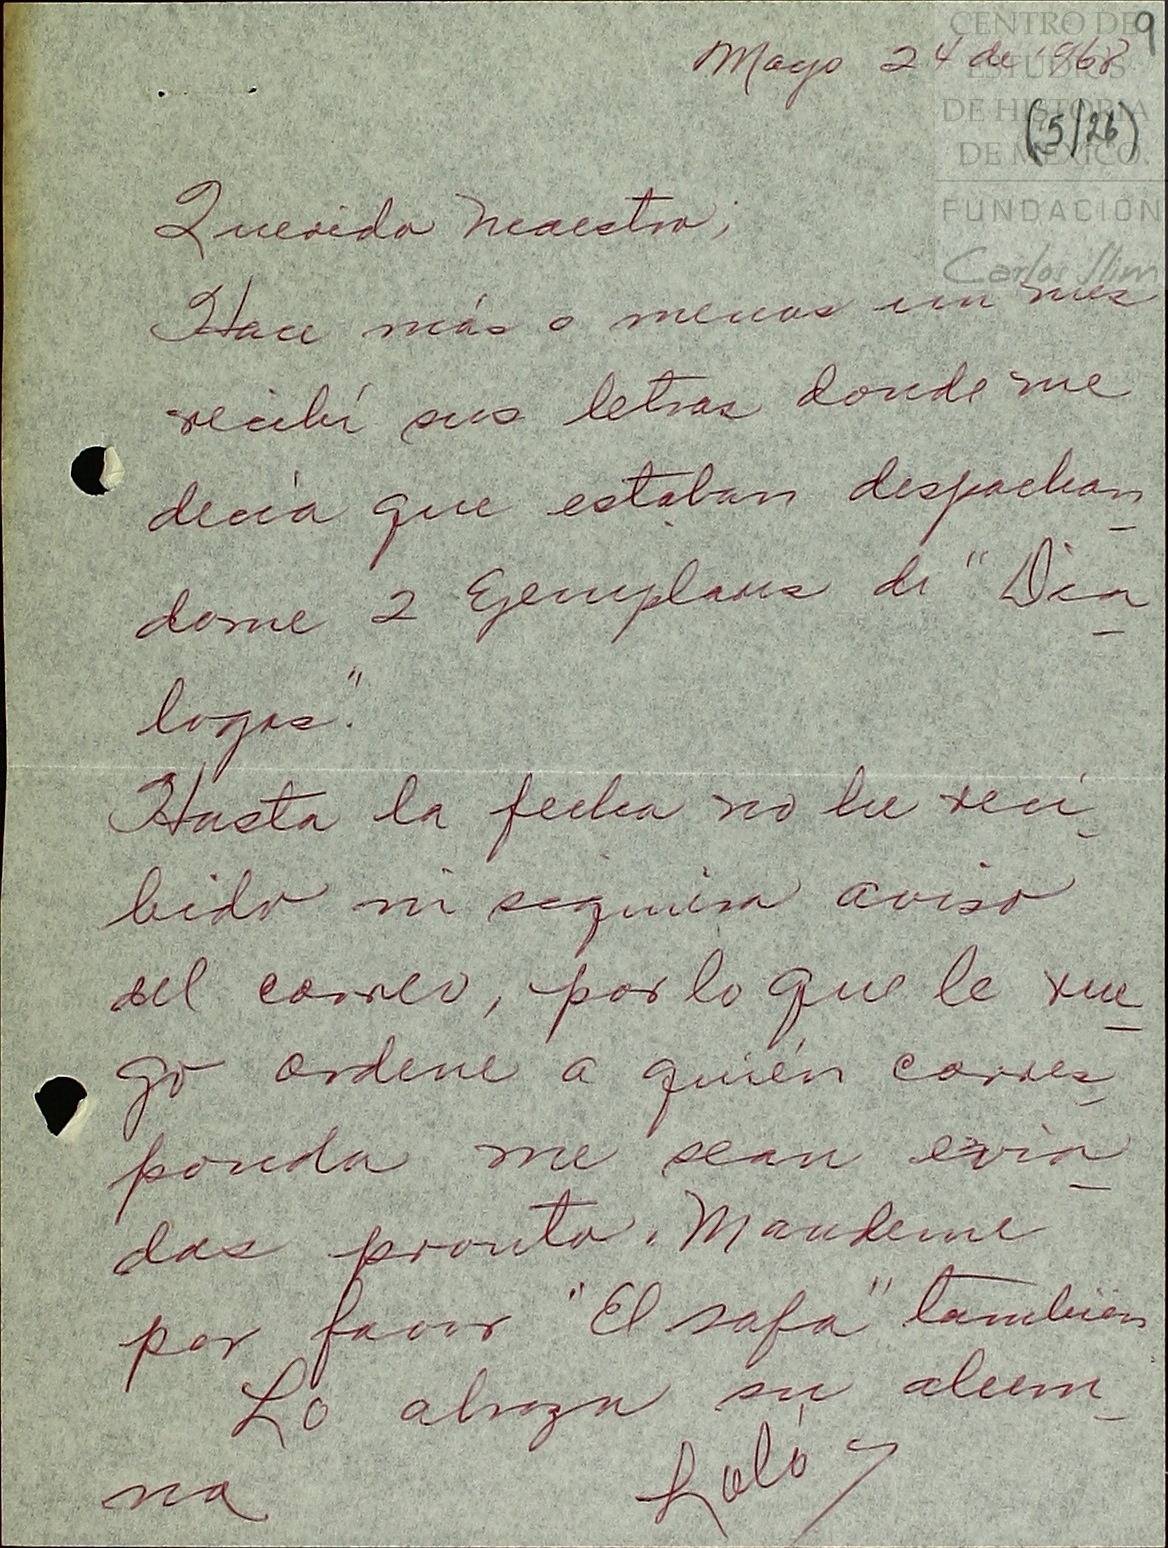 CENTRO DE
ESTUDIOS
DE HISTORIA
DE MÉXICO.
FUNDACIÓN
Carlos Slim
9
Mayo 24 de 1968
(5/26)
Querido Maestro;
Hace más o menos un mes
recibí sus letras donde me
decía que estaban despachan
dome 2 Ejemplares de "Dia
logos".
Hasta la fecha no he reci
bido ni siquiera aviso
del correo, por lo que le rue
go ordene a quién corres
ponda me sean evia
dos pronto. Mandeme
por favor "El sofa" también
Lo abraza su alum
na
Loló